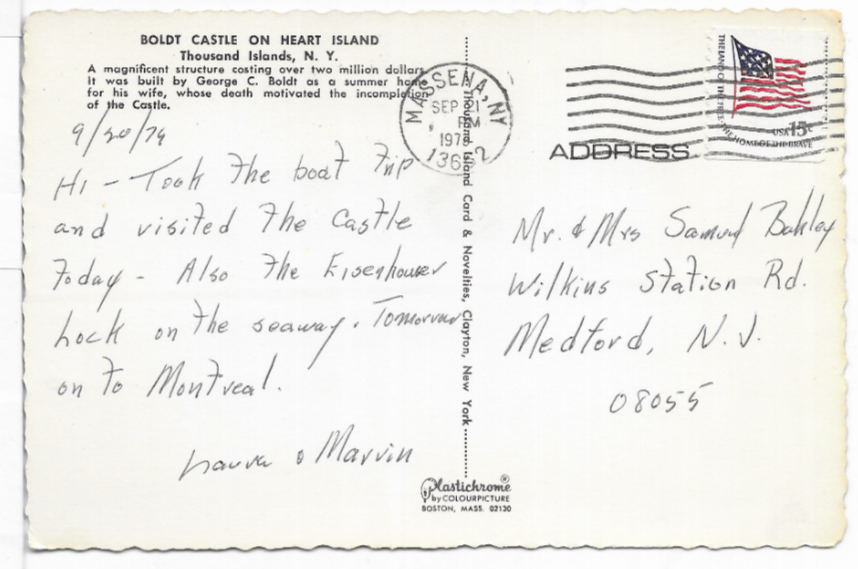 BOLDT CASTLE ON HEART ISLAND
Thousand Islands, N. Y.
A magnificent structure costing over two million dollars.
It was built by George C. Boldt as a summer home
for his wife, whose death motivated the incompletion
of the Castle.
9/20/79
Hi - Took the boat trip
and visited the Castle
today - Also the Eisenhower
Lock on the seaway. Tomorrow
on to Montreal.
Laura & Marvin
MASSENA, NY
SEP 21
PM
197
136 2
Thousand Island Card & Novelties, Clayton, New York
Plastichrome®
by COLOURPICTURE
BOSTON, MASS. 02130
THE LAND OF THE FREE · THE HOME OF THE BRAVE
USA 15c
ADDRESS
Mr. & Mrs Samuel
Wilkins Station Rd.
Medford, N. J.
08055